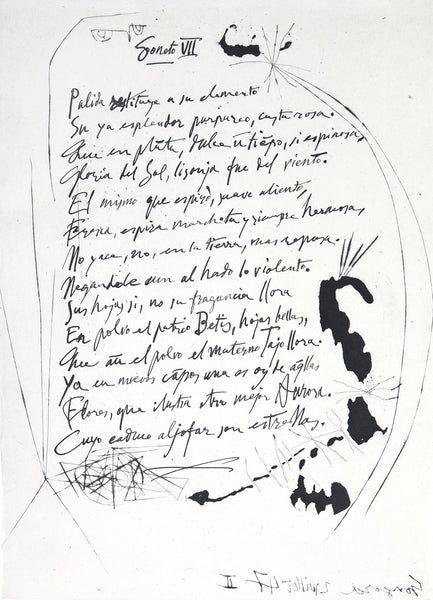 Soneto VII
Palida restituye a su elemento
Su ya esplendor purpureo, casta rosa.
Que en plāta, dulce ūtiēpo, si espinosa,
Gloria del Sol, lisonja fue del viento.
El mismo que espiró, suave aliento,
Fresca, espira marchita y siempre hermosa,
No yace, no, en la tierra, mas reposa.
Negandole aun al hado lo violento.
Sus hojas si, no su fragancia llora
En polvo el patrio Betis, hojas bellas,
Que aū el polvo el materno Tajo llora.
Ya en nuevos cāpos una es oy de aq̄llas
Flores, que ilustra otra mejor Aurora.
Cuyo caduco aljofar son estrellas.
Gongora 2 juillet 47 II